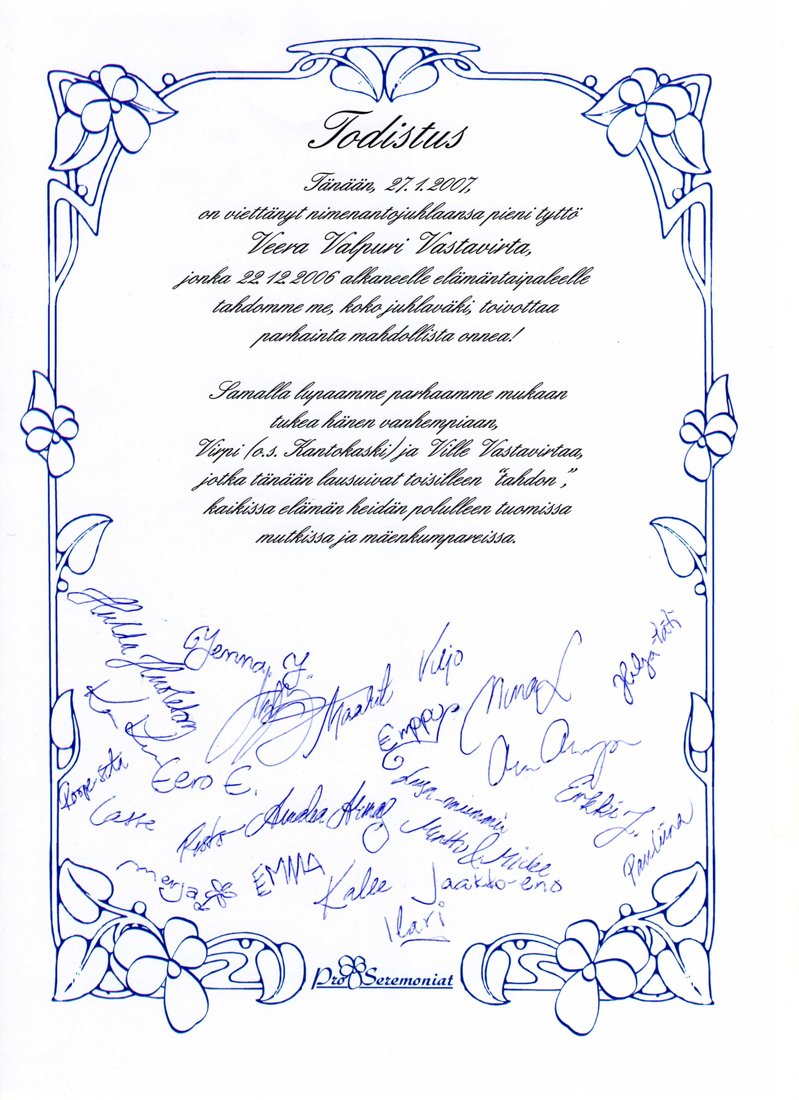 Todistus
Tänään, 27.1.2007,
on viettänyt nimenantojuhlaansa pieni tyttö
Veera Valpuri Vastavirta,
jonka 22.12.2006 alkaneelle elämäntaipaleelle
tahdomme me, koko juhlaväki, toivottaa
parhainta mahdollista onnea!
Samalla lupaamme parhaamme mukaan
tukea hänen vanhempiaan,
Virpi (o.s. Kantokaski) ja Ville Vastavirtaa,
jotka tänään lausuivat toisilleen "tahdon",
kaikissa elämän heidän polulleen tuomissa
mutkissa ja mäenkumpareissa.
Hulda Huoleton
Jenna Y.
Veijo
Helga-täti
Maahit
Emppu
Minna L
Roope setä
Eero E.
Lasse
Risto
Erkki J.
Pauliina
Merja
EMMA
Kalle
Jaakko-eno
Ilari
Pro Seremoniat